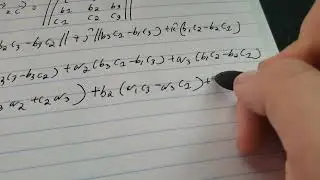 2×C) = || b₁ b₂ b₃ ||
c₁ c₂ c₃
b₂c₃-b₃c₂|| + ĵ||b₃c₁-b₁c₃|| + k̂(b₁c₂-b₂c₁)
c₃-b₃c₂) + a₂(b₃c₁-b₁c₃) + a₃(b₁c₂-b₂c₁)
₃a₂+c₂a₃) + b₂(a₁c₃-a₃c₁)+